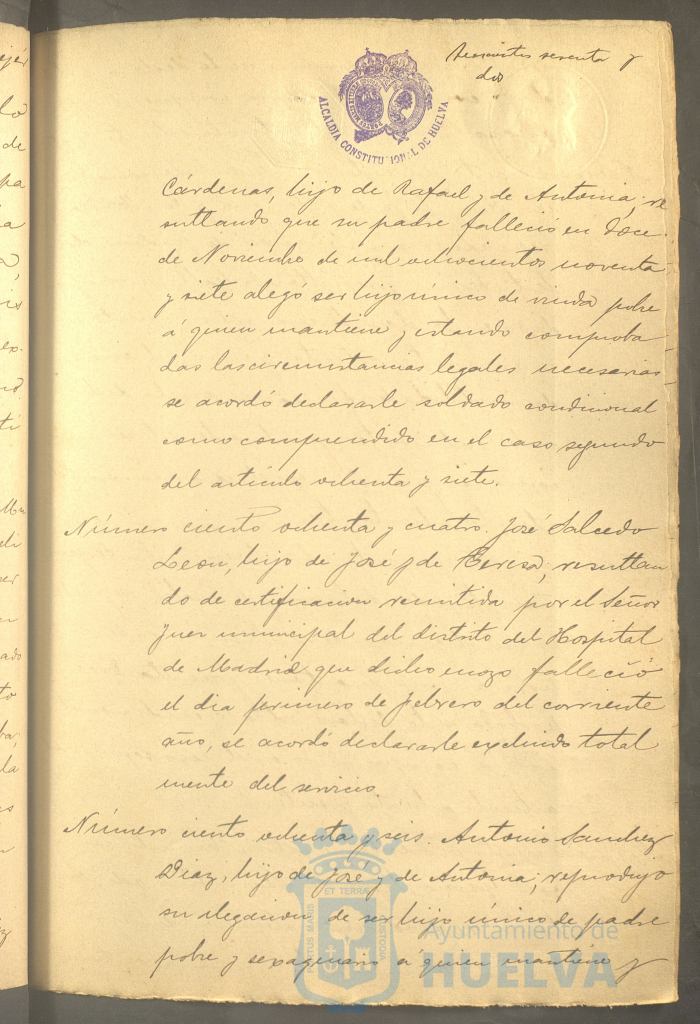 Trescientos sesenta y
dos
ALCALDIA CONSTITUCIONAL DE HUELVA
Cárdenas, hijo de Rafael y de Antonia; re
sultando que su padre falleció en doce
de Noviembre de mil ochocientos noventa
y siete alegó ser hijo único de viuda pobre
á quien mantiene y estando comproba
das las circunstancias legales necesarias
se acordó declararle soldado condicional
como comprendido en el caso segundo
del artículo ochenta y siete.
Número ciento ochenta y cuatro. José Salcedo
Leon, hijo de José y de Teresa; resultan
do de certificacion remitida por el Señor
Juez municipal del distrito del Hospital
de Madrid que dicho mozo falleció
el dia primero de Febrero del corriente
año, se acordó declararle excluido total
mente del servicio.
Número ciento ochenta y seis. Antonio Sanchez
Diaz, hijo de José y de Antonia; reprodujo
su alegacion de ser hijo único de padre
pobre y sexagenario á quien mantiene y
PORTUS MARIS ET TERRAE CUSTODIA
Ayuntamiento de
HUELVA